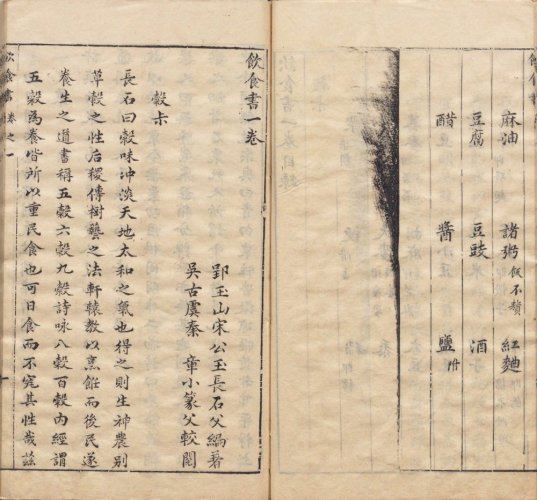 麻油 諸粥飯不贅 紅麯
豆腐 豆豉 酒
醋 醬 鹽附
飲食書一卷
郢玉山宋公玉長石父編著
吳古虞秦 章小篆父較閱
穀尗
長石曰穀味冲淡天地太和之氣也得之則生神農別
草穀之性后稷傳樹藝之法軒轅教以烹飪而後民遂
養生之道書稱五穀六穀九穀詩咏八穀百穀內經謂
五穀為養皆所以重民食也可日食而不究其性哉茲
飲食書 卷之一